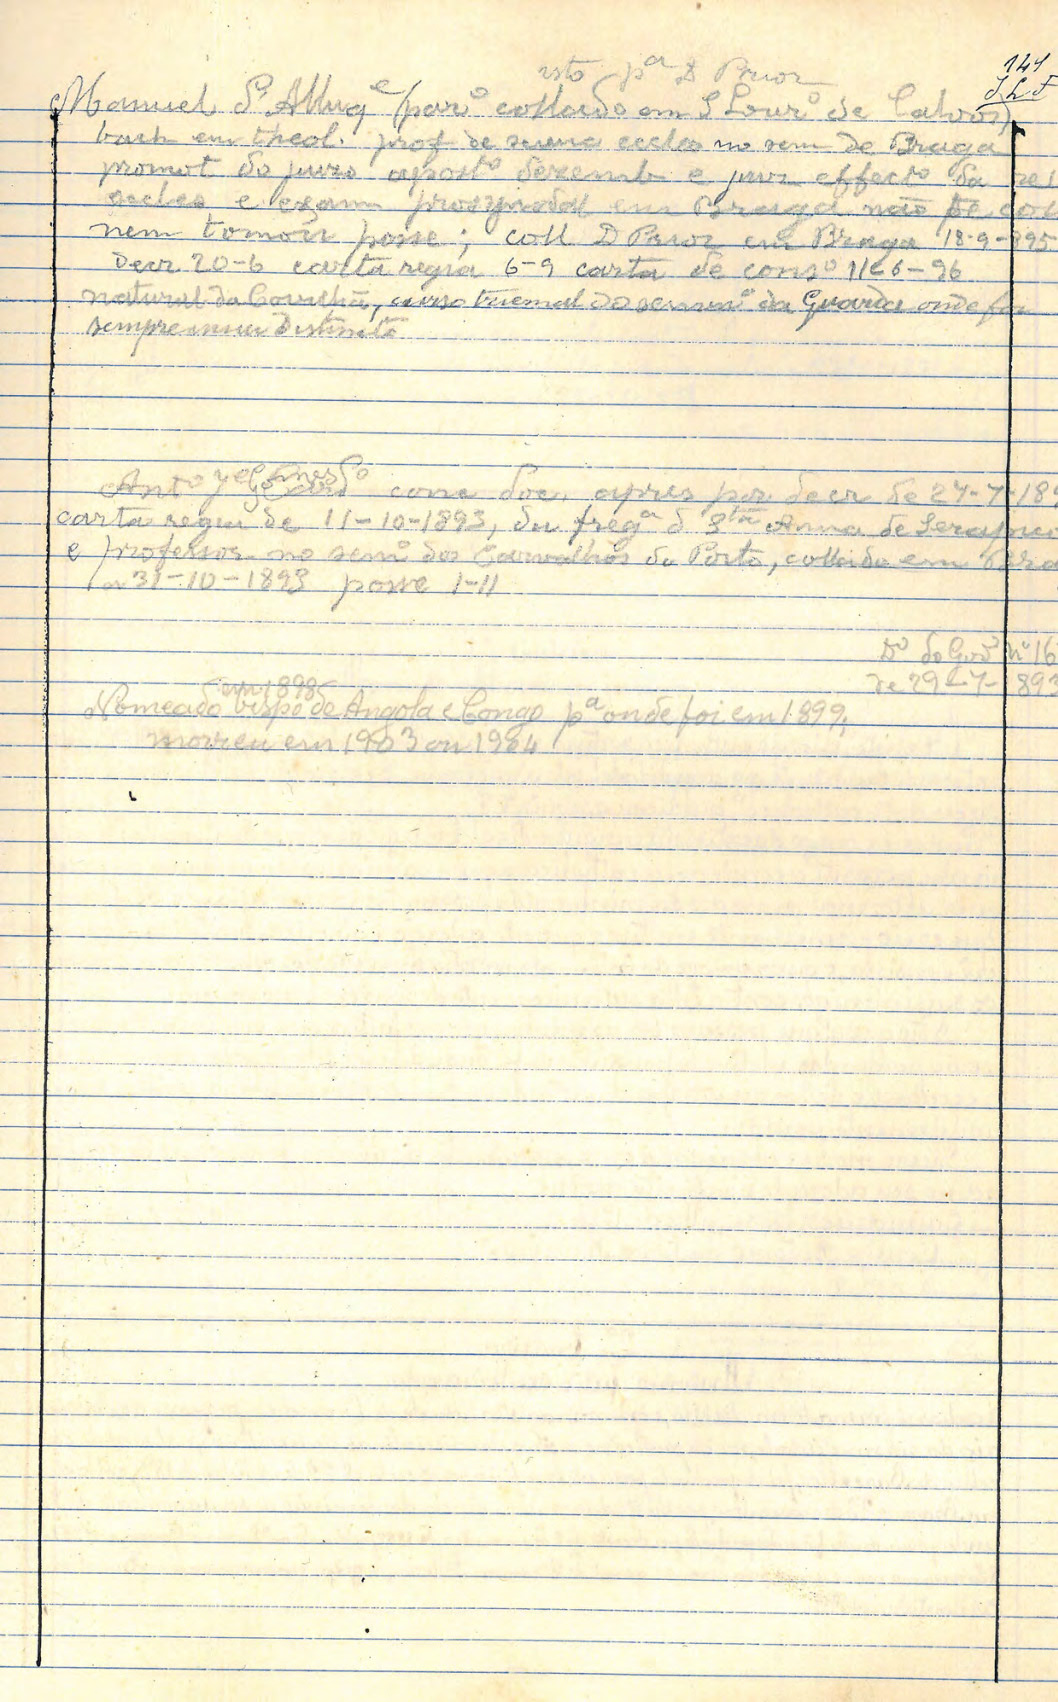 141
isto pª D Prior
Manuel d'Albuqe (paro collado em S Louro de Calvos)
bach em theol. prof de scienc eccles no sem de Braga
promot do juizo aposto e juiz effecto da rel
eccles e exam prosynodal em Braga não se col
nem tomou posse; coll D Prior em Braga 18-9-895
Decr 20-6 carta regia 6-9 carta de conso 11-6-96
natural da Covilhã, curso triennal do semino da Guarda onde foi
sempre muito distincto
Anto Je Gomes Cardo cone doc. apres por decr de 27-7-189
carta regia de 11-10-1893, da frega d Sta Anna de
e professor no semo dos Carvalhos do Porto, collado em Bra
a 31-10-1893 posse 1-11
Do do Govo nº 16
de 29-7-893
em 1898
Nomeado bispo de Angola e Congo pª onde foi em 1899,
morreu em 1903 ou 1904